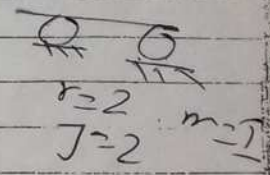 r=2
J=2 m=I